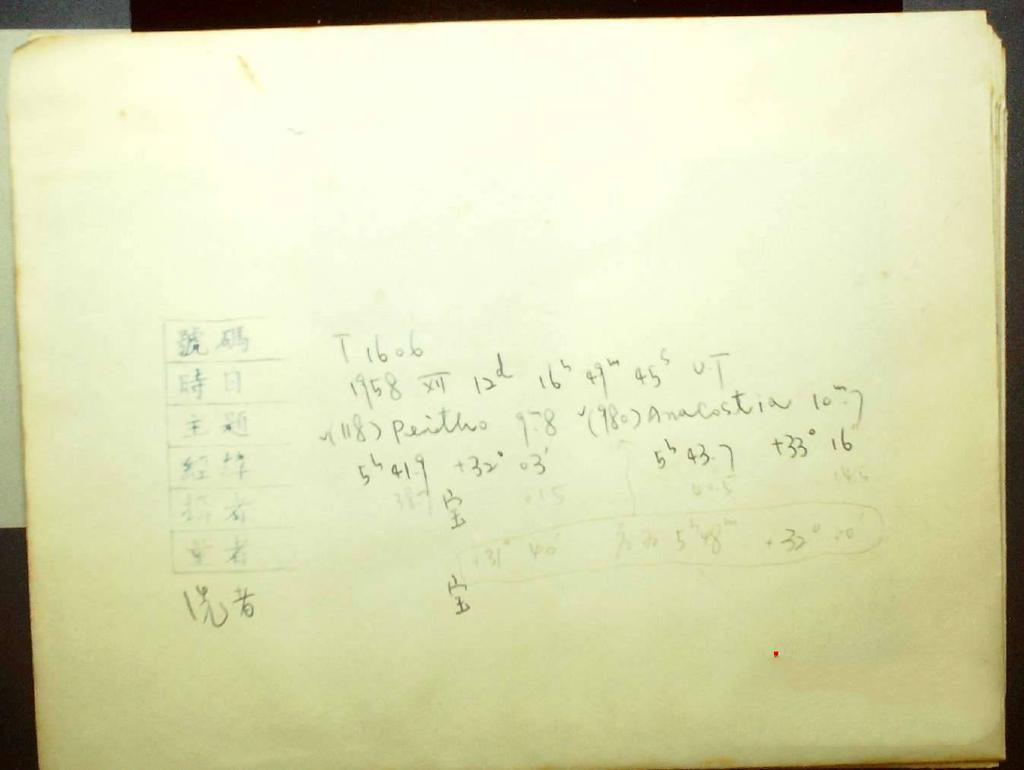 號碼 T 1606
時日 1958 XII 12d 16h 49m 45s U.T
主題 √(118) Peitho 9m.8 √(980) Anacostia 10m.7
經緯 5h 41.9 +32° 03' 5h 43.7 +33° 16
38.7 01.5 40.5 14.5
攝者 宝
量者 +31° 40' 5h 48m +32° 00'
洗者 宝